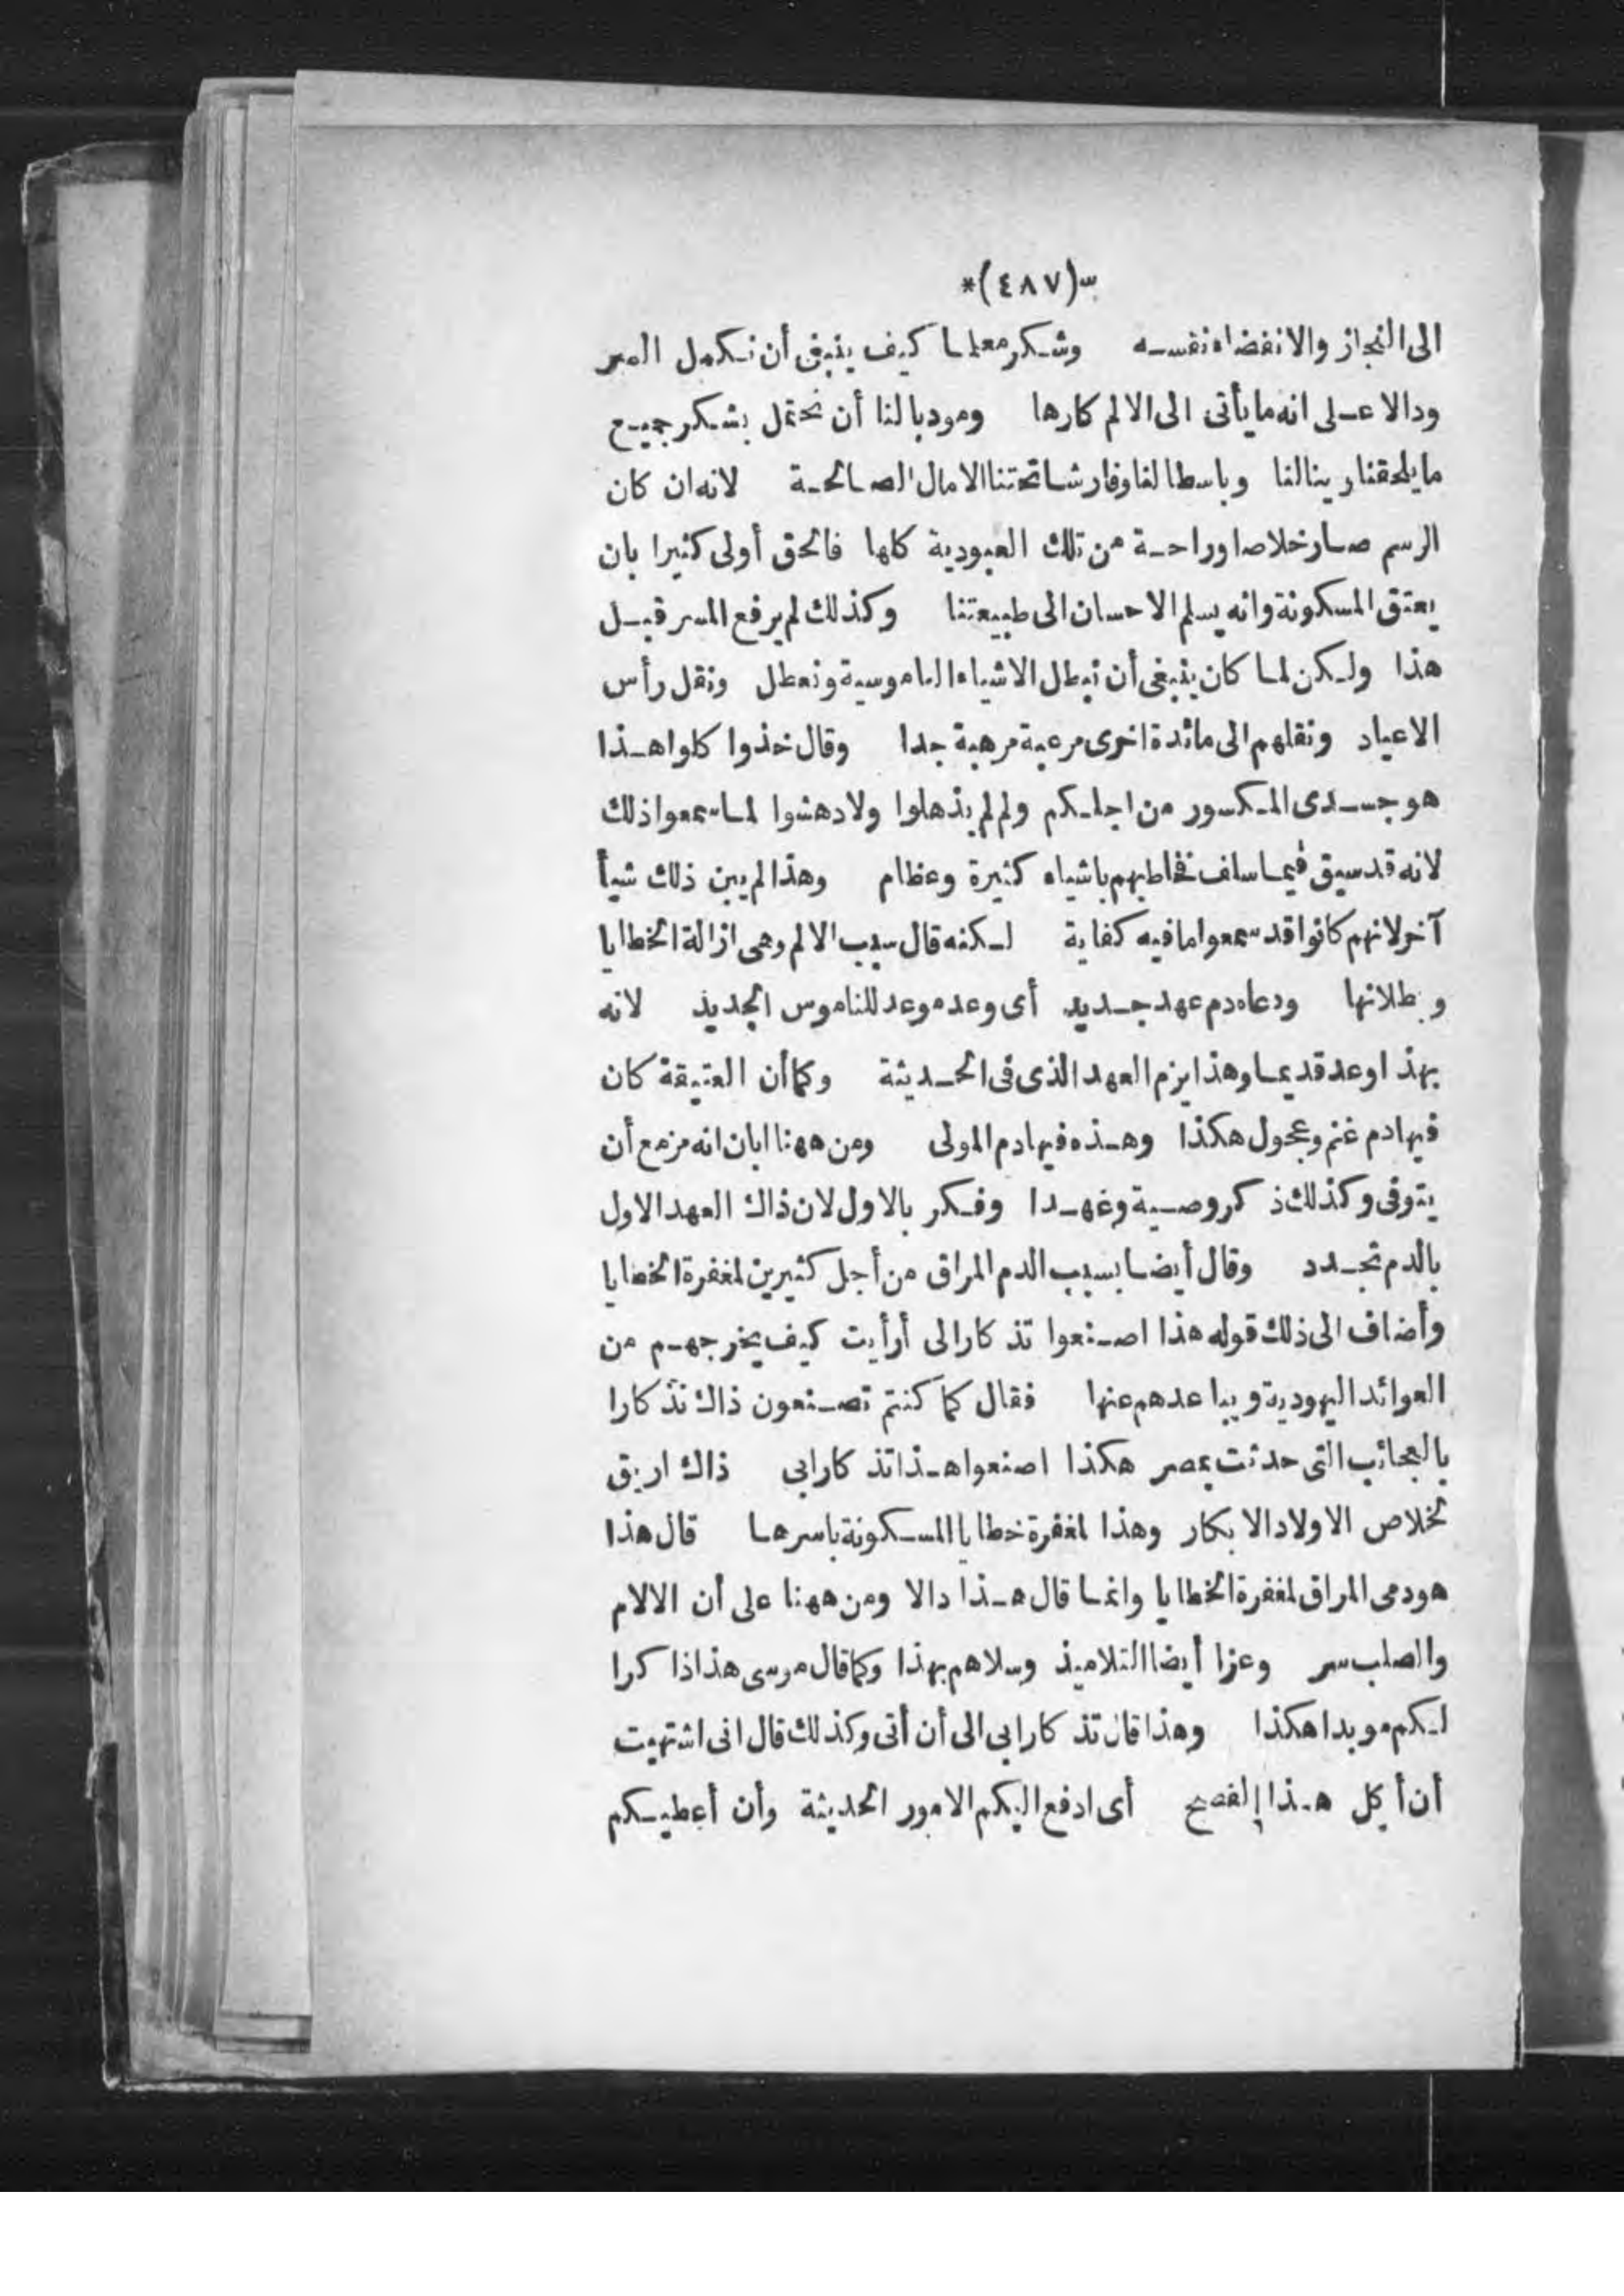 *(٤٨٧)*
الى النجاز والانفضاء نفسه وشكر معلما كيف ينبغى أن نكمل السر
ودالا على انه ما يأتى الى الالم كارها ومودبا لنا أن نحتمل بشكر جميع
ما يلحقنا وينالنا وباسطا لنا وفارشا تحتنا الامال الصالحة لانه ان كان
الرسم صار خلاصا وراحة من تلك العبودية كلها فالحق أولى كثيرا بان
يعتق المسكونة وانه يسلم الاحسان الى طبيعتنا وكذلك لم يرفع السر قبل
هذا ولكن لما كان ينبغى أن نبطل الاشياء الناموسية ونعطل ونقل رأس
الاعياد ونقلهم الى مائدة اخرى مرعبة مرهبة جدا وقال خذوا كلوا هذا
هو جسدى المكسور من اجلكم ولم لم يذهلوا ولا دهشوا لما سمعوا ذلك
لانه قد سبق فيما سلف فخاطبهم باشياء كثيرة وعظام وهذا لم يبين ذلك شيأ
آخر لانهم كانوا قد سمعوا ما فيه كفاية لكنه قال سبب الالم وهى ازالة الخطايا
وبطلانها ودعاه دم عهد جديد أى وعد موعد للناموس الجديد لانه
بهذا وعد قديما وهذا يزم العهد الذى فى الحديثة وكما أن العتيقة كان
فيها دم غنم وعجول هكذا وهذه فيها دم المولى ومن ههنا ابان انه مزمع أن
يتوفى وكذلك ذكر وصية وغهدا وفكر بالاول لان ذاك العهد الاول
بالدم تجدد وقال أيضا بسبب الدم المراق من أجل كثيرين لمغفرة الخطايا
وأضاف الى ذلك قوله هذا اصنعوا تذكارا لى أرأيت كيف يخرجهم من
العوائد اليهودية ويباعدهم عنها فقال كما كنتم تصنعون ذاك تذكارا
بالعجائب التى حدثت بمصر هكذا اصنعوا هذا تذكارا بى ذاك اريق
لخلاص الاولاد الابكار وهذا لمغفرة خطايا المسكونة باسرها قال هذا
هو دمى المراق لمغفرة الخطايا وانما قال هذا دالا ومن ههنا على أن الالام
والصلب سر وعزا أيضا التلاميذ وسلاهم بهذا وكما قال موسى هذا ذاكرا
لكم موبدا هكذا وهذا قال تذكارا بى الى أن أتى وكذلك قال انى اشتهيت
أن أكل هذا الفصح أى ادفع اليكم الامور الحديثة وأن أعطيكم